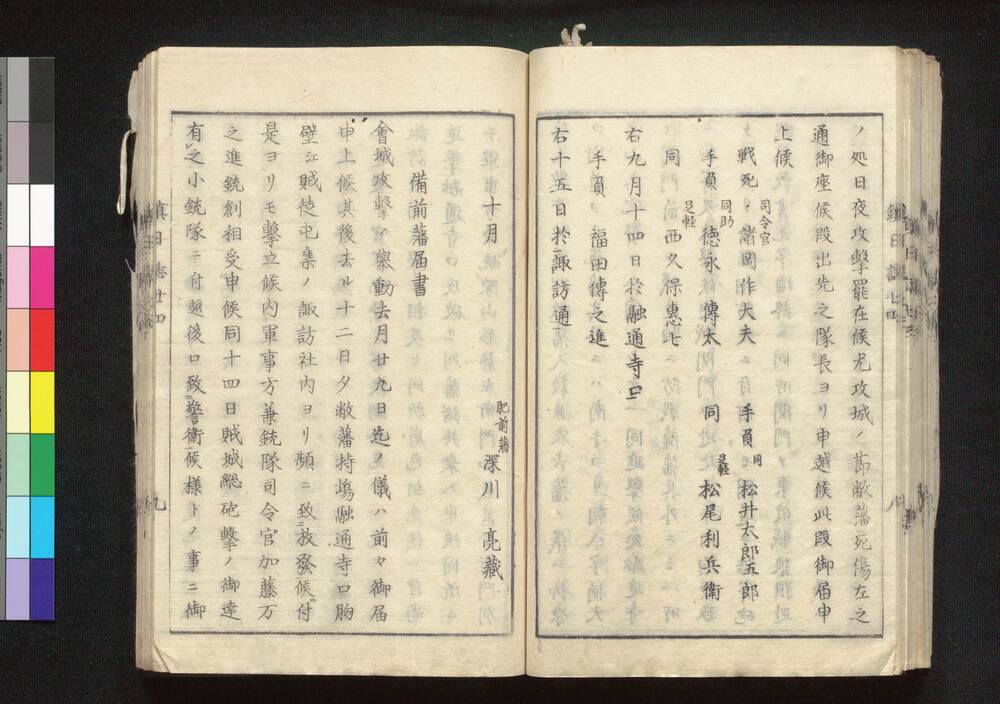 ノ処日夜攻撃罷在候尤攻城ノ節敝藩死傷左之
通御座候段出先之隊長ヨリ申越候此段御届申
上候
戦死 司令官 諸岡作大夫 手負 同 松井太郎五郎
手負 同助 徳永傳太 同 足軽 松尾利兵衛
同 足軽 西久保惠七
右九月十四日於融通寺口
手負 福田傳之進
右十五日於諏訪通
十月 肥前藩 深川亮藏
備前藩届書
會城攻撃ノ擧動去月廿九日迄ノ儀ハ前々御届
申上候其後去ル十二日夕敝藩持塲融通寺口胸
壁江賊徒屯集ノ諏訪社内ヨリ頻ニ致放發候付
是ヨリモ撃立候内軍事方兼銃隊司令官加藤万
之進銃創相受申候同十四日賊城総砲撃ノ御達
有之小銃隊ニ付越後口致警衛候様トノ事ニ御
鎮日誌廿四
九